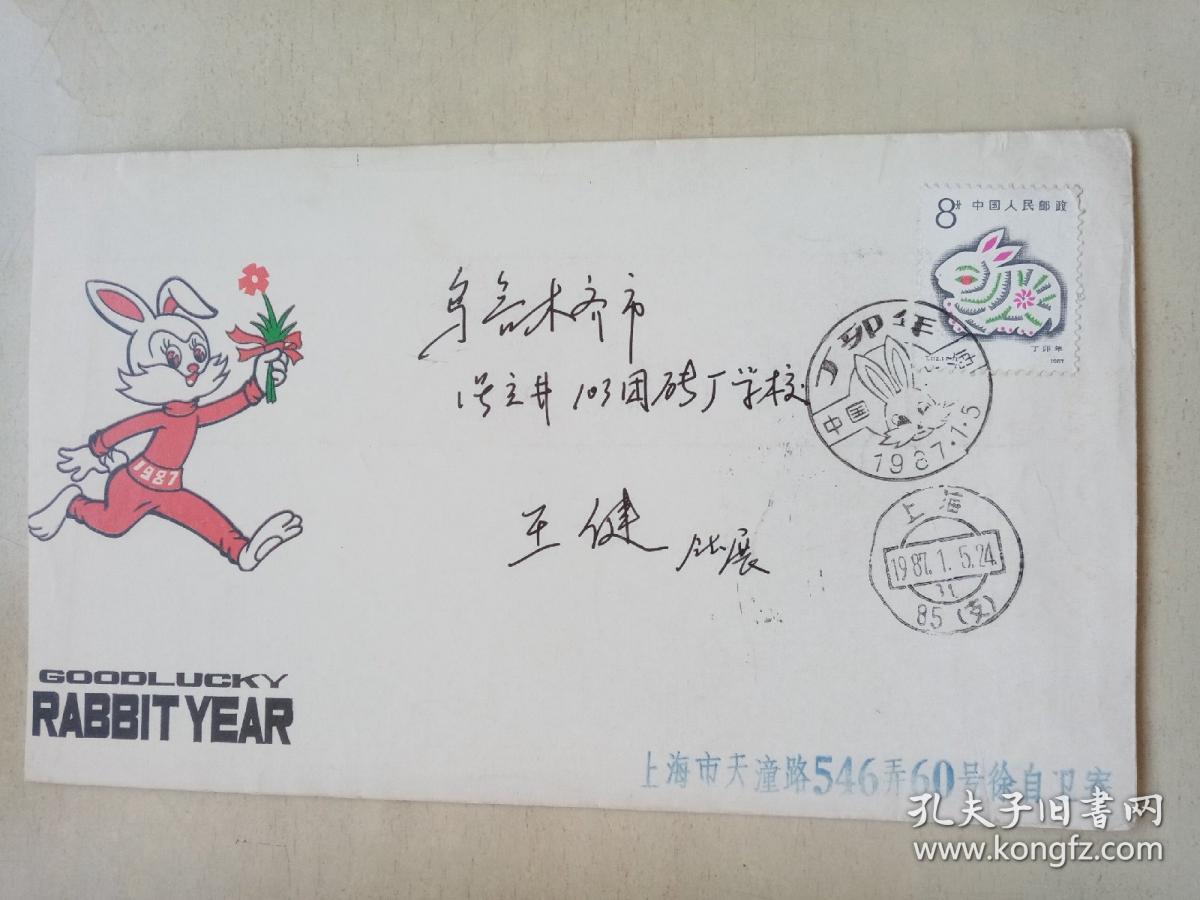 8分 中国人民邮政
丁卯年
1987
丁卯年
中国 上海
1987.1.5
上海
1987.1.5.24
31
85(支)
乌鲁木齐市
103团砖厂学校
王健
1987
GOODLUCKY
RABBIT YEAR
上海市天潼路546弄60号徐自卫寄
孔夫子旧书网
www.kongfz.com